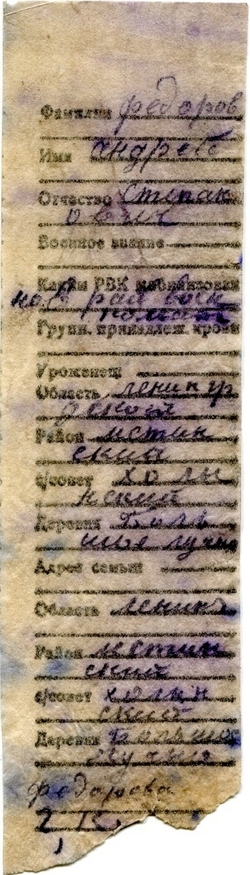 Фамилия Федоров
Имя Андрей
Отчество Степан
ович
Военное звание
Каким РВК мобилизован
Групп. принадлеж. крови
Уроженец
Область Ленингр
Район Мстин
ский
с/совет Холы
нский
Деревня Боль
шие
Адрес семьи
Область Ленингр
Район Мстин
ский
с/совет Холын
ский
Деревня Больши
Федорова